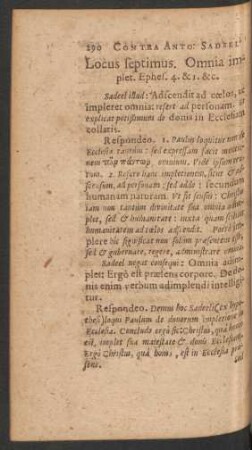 290 CONTRA ANTO: SADEEL:
Locus septimus. Omnia im-
plet. Ephes. 4. & 1. &c.
Sadeel illud: Adscendit ad cœlos, ut
impleret omnia: refert ad personam.
explicat potissimum de donis in Ecclesiam
collatis.
Respondeo. 1. Paulus loquitur non de
Ecclesia tantum: sed expressam facit mentio-
nem omnium. Vide ipsum
2. Refert hanc impletionem, sicut &
ad personam; sed addo: secundum
humanam naturam. Ut sit sensus:
non tantum divinitate sua omnia
plet, sed & humanitate: iuxta quam
humanitatem ad cœlos adscendit. Porrò im-
plere hic significat non solùm præsentem esse,
sed & gubernare, regere, administrare
Sadeel negat consequi: Omnia adim-
plet: Ergò est præsens corpore. De do-
nis enim verbum adimplendi intelligi-
tur.
Respondeo. Demus hoc Sadeeli (ex hypo-
thesi) loqui Paulum de donorum impletione in
Ecclesia. Concludo ergò sic: Christus, quà homo
est, implet sua maiestate & donis Ecclesiam:
Ergò Christus, quà homo, est in Ecclesia præ-
sens.